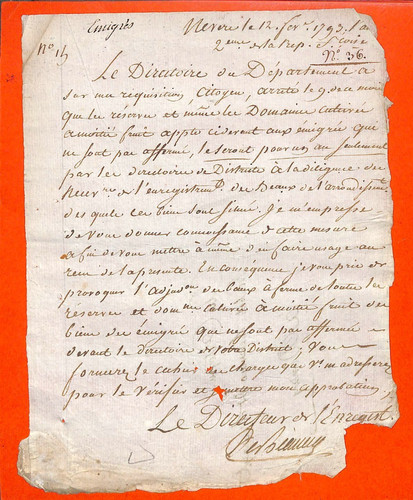 Emigrés
Nevers le 12 fevr. 1793. l'an
2eme de la Rep. 
No 15
No. 36.
Le Directoire du Département a
sur ma requisition, Citoyen, arrete le 9 de ce mois
que les reserves et même les Domaines cultivés
a moitié fruit appts cidevant aux emigrés qui
ne sont pas affermés, le seront pour un an seulement
par les directoires de Districts à la diligence des
Recevrs de l'enregistremt. des Beaux de l'arrondissemt.
des quels ces biens sont situés. Je m'empresse
de vous donner connoissance de cette mesure
afin de vous mettre à même d'en faire usage au
recu de la presente. En conséquence je vous prie de
provoquer l'adjudon. des baux à ferme de toutes les
reserves et domnes cultivés à moitié fruit des
biens des emigrés qui ne sont pas affermés
devant le directoire de votre District; Vous
formerez le cahier des charges que vs. m'adresserez
pour le verifier et y mettre mon approbation
Le Directeur de l'Enregist.